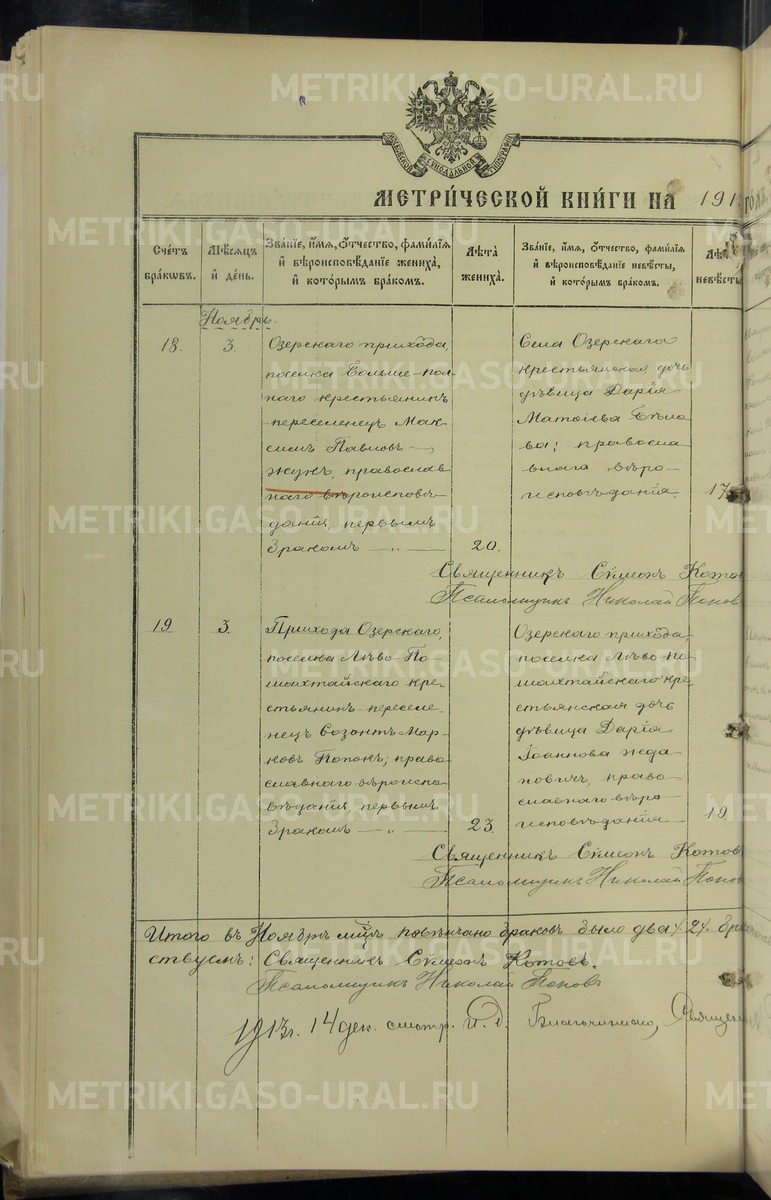 МЕТРИ́ЧЕСКОЙ КНИ́ГИ НА 191
Сче́тъ бра́кѡвъ.
Мѣ́сяцъ и҆ де́нь.
Зва́нїе, и҆́мя, ѻ҆́тчество, фами́лїя и҆ вѣроисповѣ́данїе жениха̀, и҆ кото́рымъ бра́комъ.
Лѣ́та жениха̀.
Зва́нїе, и҆́мя, ѻ҆́тчество, фами́лїя и҆ вѣроисповѣ́данїе невѣ́сты, и҆ кото́рымъ бра́комъ.
Лѣ́та невѣ́сты
Ноябрь.
18.
3.
Озерскаго прихода
поселка Больше-пол-
наго крестьянинъ
переселенецъ Мак-
симъ Павловъ
Жукъ, православ
наго вѣроисповѣ-
данія, первымъ
бракомъ — „ —
20.
Села Озерскаго
крестьянская дочь
дѣвица Дарія
Матѳіева Бѣло
ва; правосла
внаго вѣро-
исповѣданія.
17
Священникъ Сѵмеонъ Котов
Псаломщикъ Николай Попов
19.
3.
Прихода Озерскаго,
поселка Лѣво-По-
шахтайскаго кре-
стьянинъ-переселе-
нецъ Созонтъ Мар-
ковъ Попокъ; право
славнаго вѣроиспо-
вѣданія, первымъ
бракомъ — „ —
23.
Озерскаго прихода,
поселка Лѣво-По-
шахтайскаго кре-
стьянская дочь
дѣвица Дарія
Іоаннова Жда-
новичъ, право-
славнаго вѣро-
исповѣданія
19.
Священникъ Сѵмеонъ Котов
Псаломщикъ Николай Попов
Итого въ Ноябрѣ мцѣ повѣнчано браковъ было два
Священникъ Сѵмеонъ Котовъ.
Псаломщикъ Николай Поповъ
1913г. 14 дек. смотр. и. д. Благочиннаго, Священ
METRIKI.GASO-URAL.RU